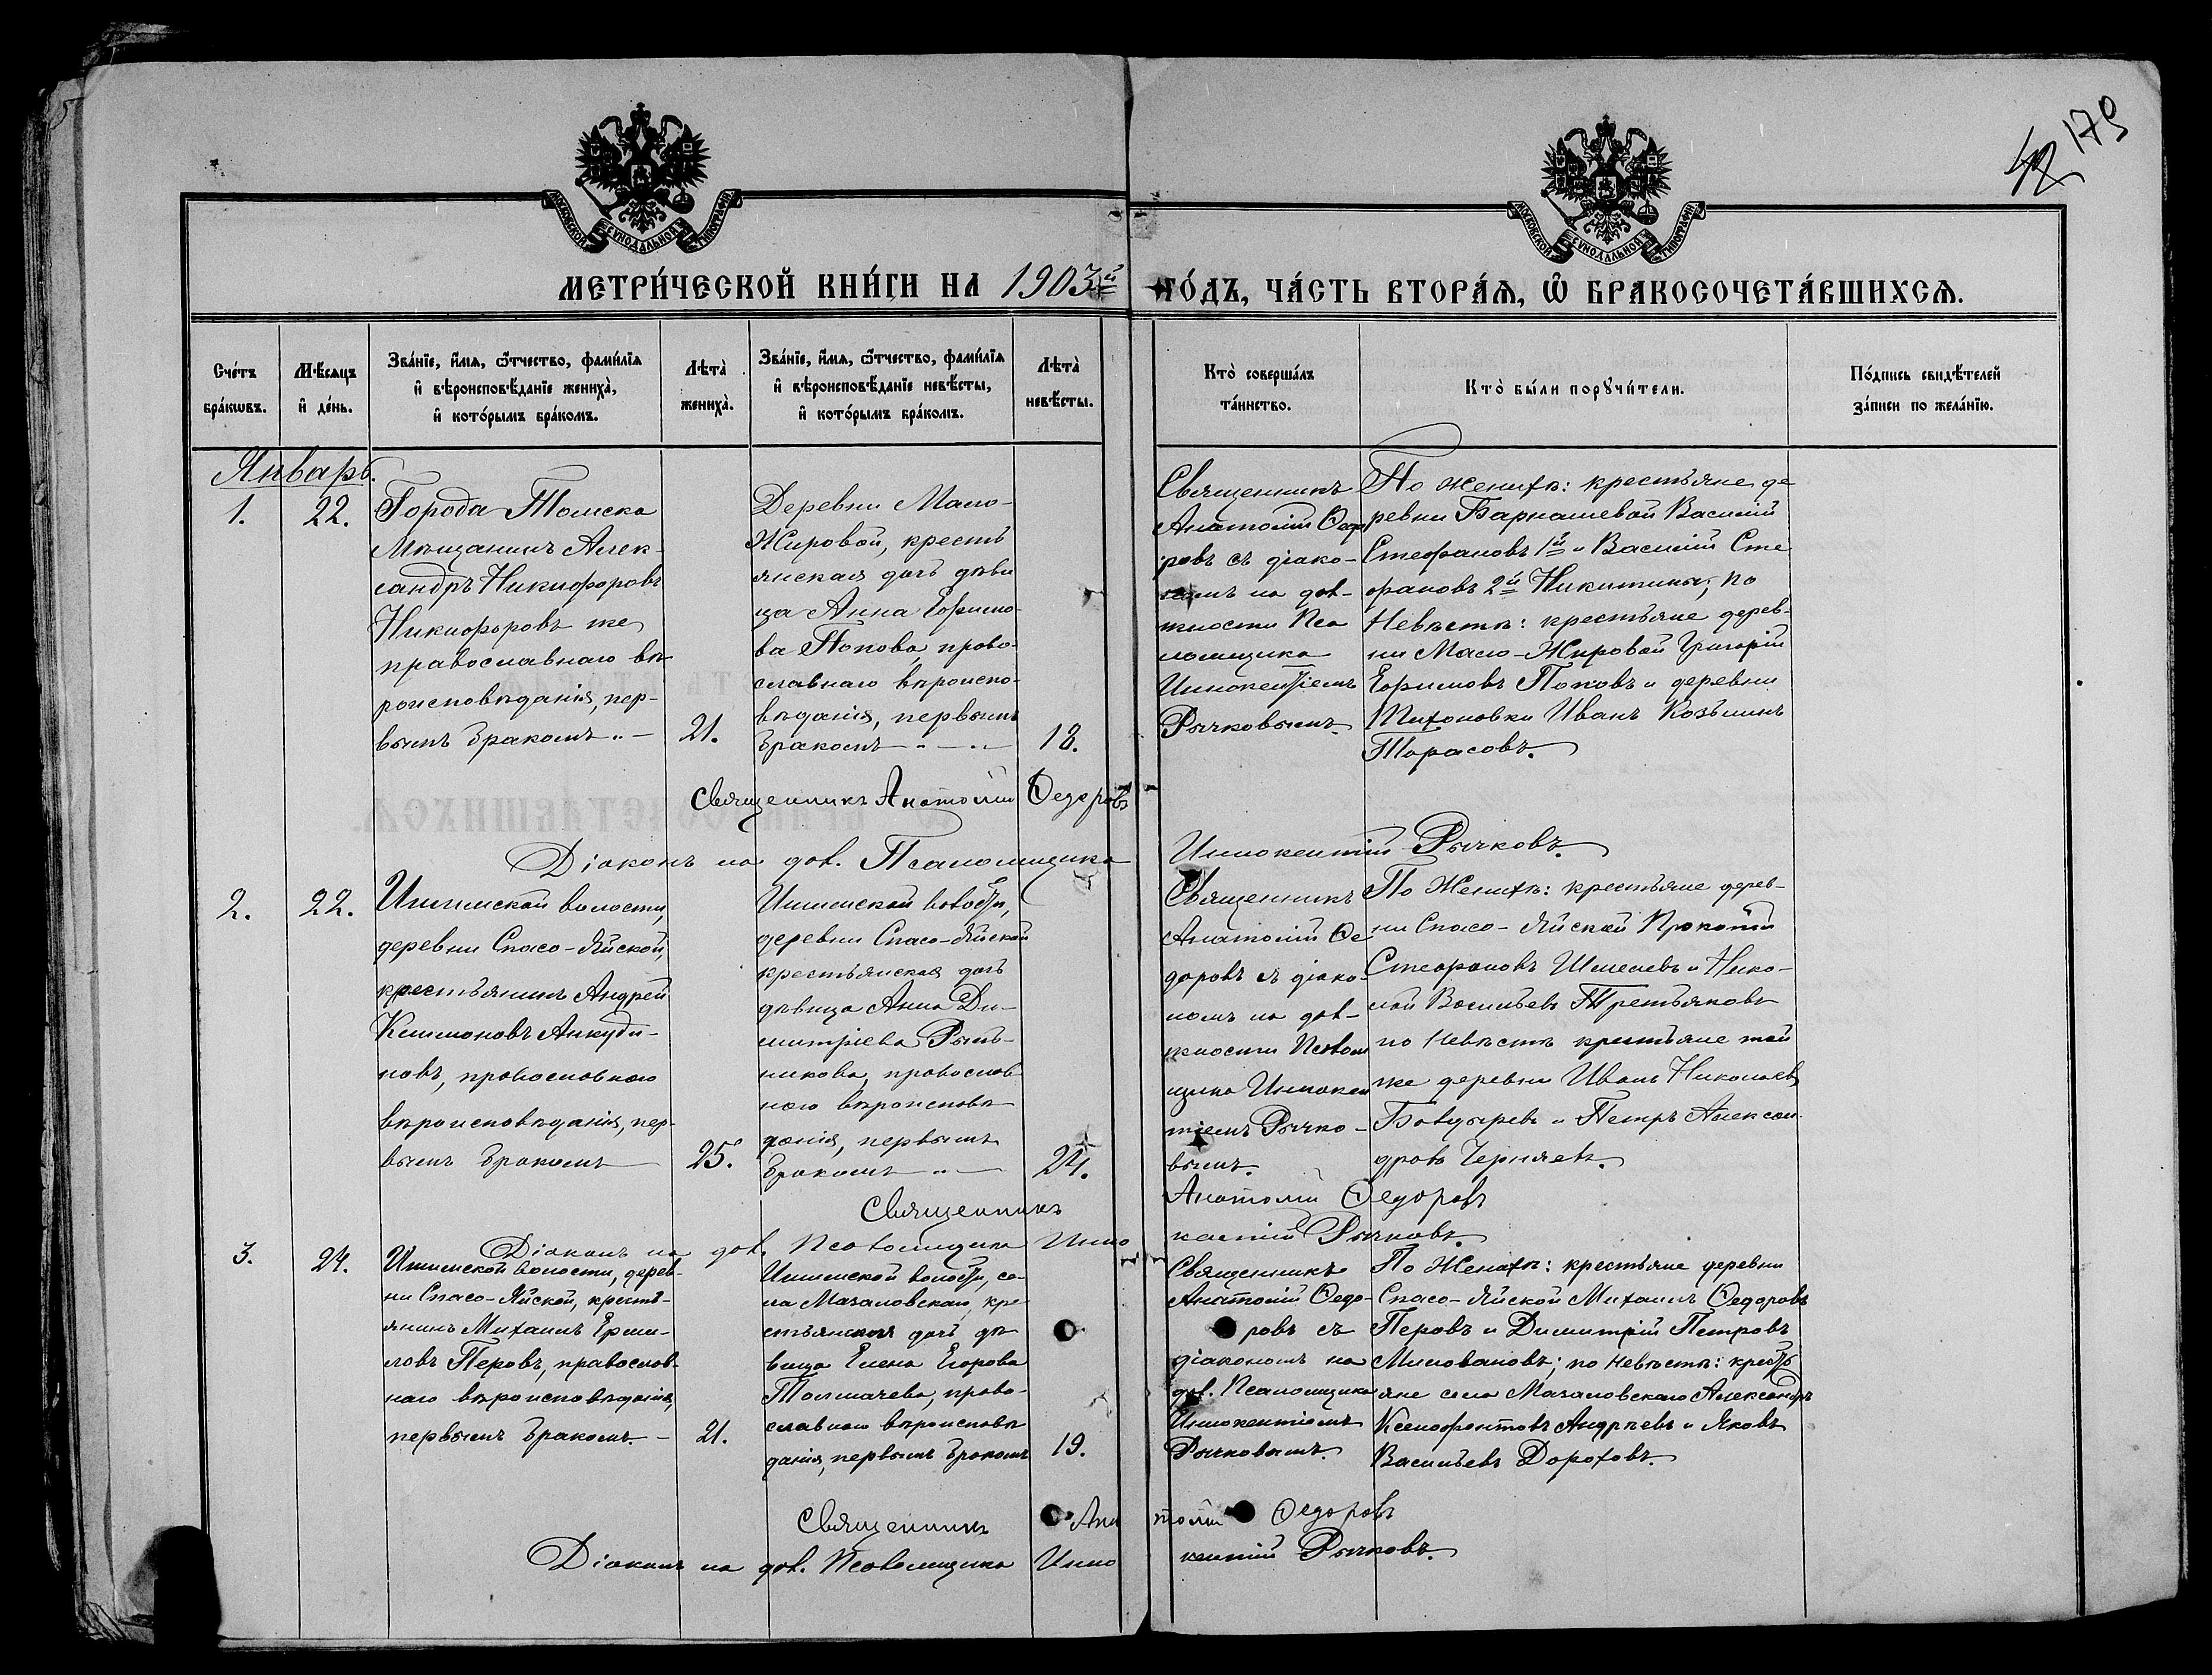 179
МОСКОВСКОЙ СѴНОДАЛЬНОЙ ТИПОГРАФІИ
МОСКОВСКОЙ СѴНОДАЛЬНОЙ ТИПОГРАФІИ
МЕТРИ́ЧЕСКОЙ КНИ́ГИ НА 1903й ГО́ДЪ, ЧА́СТЬ ВТОРА́Ѧ, Ѡ҆ БРАКОСОЧЕТА́ВШИХСѦ.
Сче́тъ
бра́кѡвъ.
Мѣ́сѧцъ
и҆ де́нь.
Зва́нїе, и҆́мѧ, ѻ҆́тчество, фамі́лїѧ
и҆ вѣроисповѣ́данїе жениха̀,
и҆ кото́рымъ бра́комъ.
Лѣта̀
жениха̀.
Зва́нїе, и҆́мѧ, ѻ҆́тчество, фамі́лїѧ
и҆ вѣроисповѣ́данїе невѣ́сты,
и҆ кото́рымъ бра́комъ.
Лѣта̀
невѣ́сты.
Кто̀ соверша́лъ
та́инство.
Кто̀ бы́ли порꙋчи́тели.
По́дпись свидѣ́телей
за́писи по жела́нїю.
Январь.
1.
22.
Города Томска
Мѣщанинъ Алек-
сандръ Никифоровъ
Никифоровъ же,
православнаго вѣ-
роисповѣданія, пер-
вымъ бракомъ
21.
Деревни Мало-
Жировой, кресть
янская дочь дѣви
ца Анна Ефимо-
ва Попова, право-
славнаго вѣроиспо-
вѣданія, первымъ
бракомъ
18.
Священникъ
Анатолій Ѳедо
ровъ съ діако-
номъ на дол-
жности Пса
ломщика
Иннокентіемъ
Рычковымъ.
По женихѣ: крестьяне де
ревни Барнашевой Василій
Стефановъ 1й и Василій Сте
фановъ 2й Никитины; по
Невѣстѣ: крестьяне дерев-
ни Мало-Жировой Григорій
Ефимовъ Поповъ и деревни
Тихоновки Иванъ Козьминъ
Тарасовъ.
Священникъ Анатолій Ѳедоровъ
Діаконъ на дол. Псаломщика Иннокентій Рычковъ.
2.
22.
Ишимской волости,
деревни Спасо-Яйской,
крестьянинъ Андрей
Климоновъ Анкуди-
новъ, православнаго
вѣроисповѣданія, пер-
вымъ бракомъ
25.
Ишимской волости,
деревни Спасо-Яйской
крестьянская дочь
дѣвица Анна Ди-
митріева Рыбъ-
никова, православ
наго вѣроисповѣ
данія, первымъ
бракомъ
24.
Священникъ
Анатолій Ѳе
доровъ съ діако-
номъ на дол-
жности Псалом
щика Иннокен
тіемъ Рычко-
вымъ.
По Женихѣ: крестьяне дерев-
ни Спасо-Яйской Прокопій
Стефановъ Шмелевъ и Нико-
лай Васильевъ Третьяковъ
по Невѣстѣ крестьяне той
же деревни Иванъ Николаевъ
Болдыревъ и Петръ Алексан-
дровъ Черняевъ.
Священникъ Анатолій Ѳедоровъ
Діаконъ на дол. Псаломщика Иннокентій Рычковъ.
3.
24.
Ишимской волости, дерев-
ни Спасо-Яйской, кресть-
янинъ Михаилъ Ерми-
ловъ Перовъ, православ-
наго вѣроисповѣданія,
первымъ бракомъ.
21.
Ишимской волости, се-
ла Мазаловскаго, кре-
стьянская дочь дѣ
вица Елена Егорова
Толмачева, право-
славнаго вѣроисповѣ
данія, первымъ бракомъ
19.
Священникъ
Анатолій Ѳедо-
ровъ съ
діакономъ на
дол. Псаломщика
Иннокентіемъ
Рычковымъ.
По Женихѣ: крестьяне деревни
Спасо-Яйской Михаилъ Ѳедоровъ
Перовъ и Димитрій Петровъ
Миловановъ; по невѣстѣ: кресть
яне села Мазаловскаго Александръ
Ксенофонтовъ Андреевъ и Яковъ
Васильевъ Дороховъ.
Священникъ Анатолій Ѳедоровъ
Діаконъ на дол. Псаломщика Иннокентій Рычковъ.